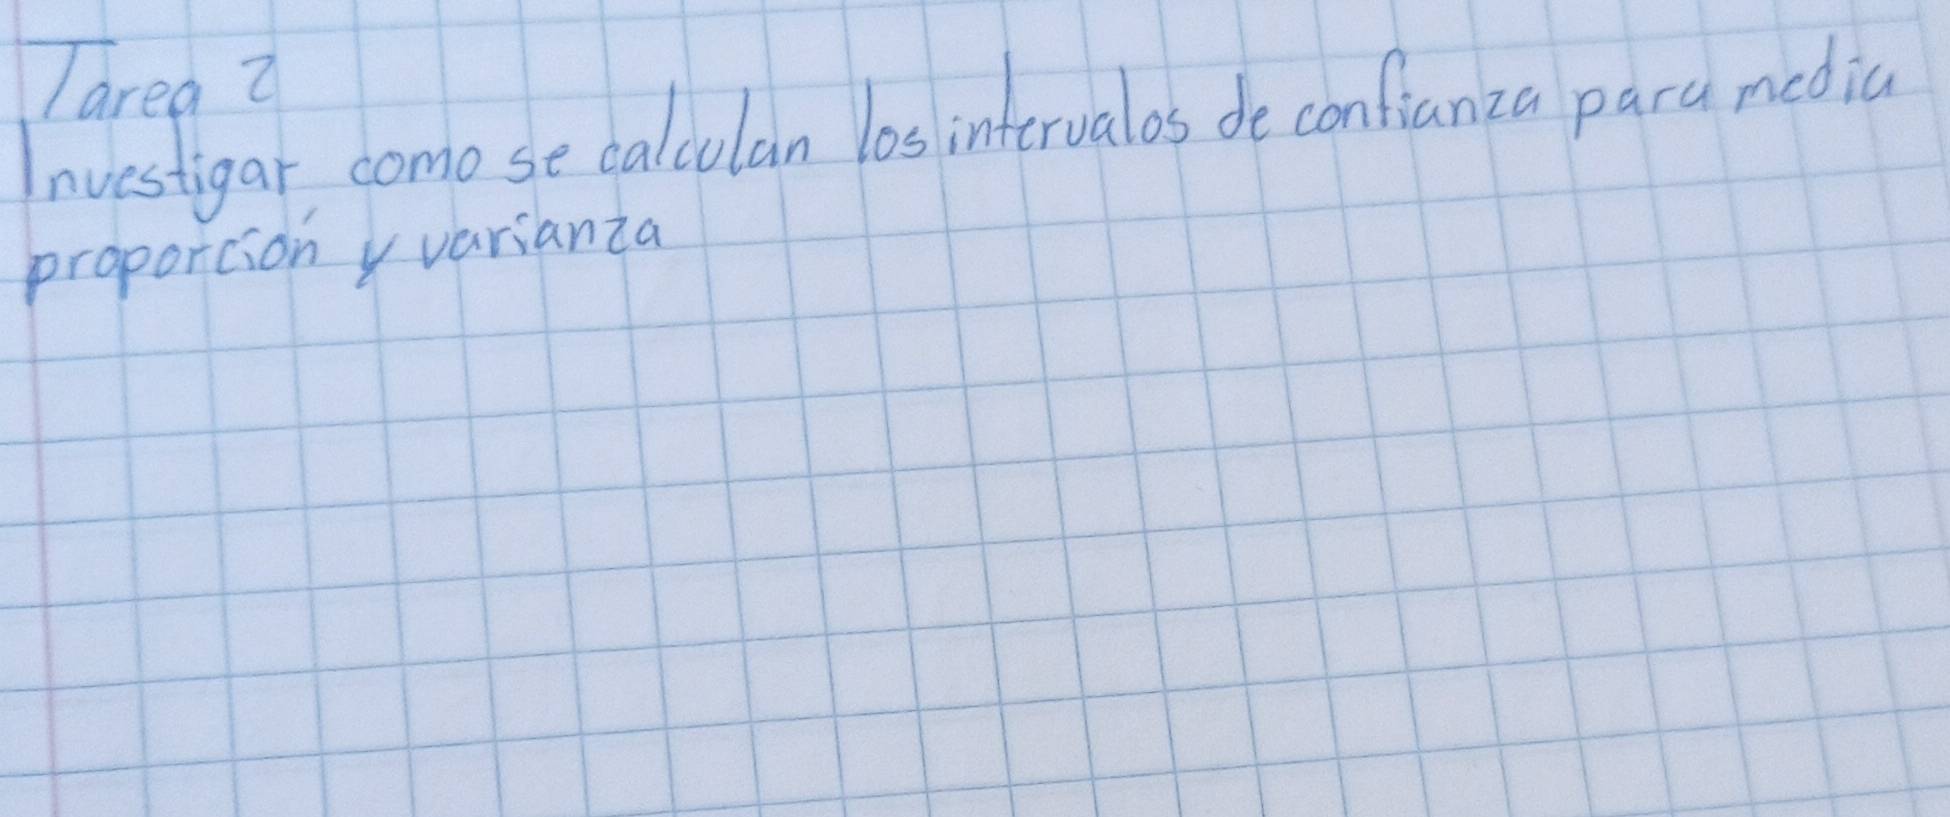 Tarea 2
Investigar como se calculan los intervalos de confianza para media
proporción y varianza